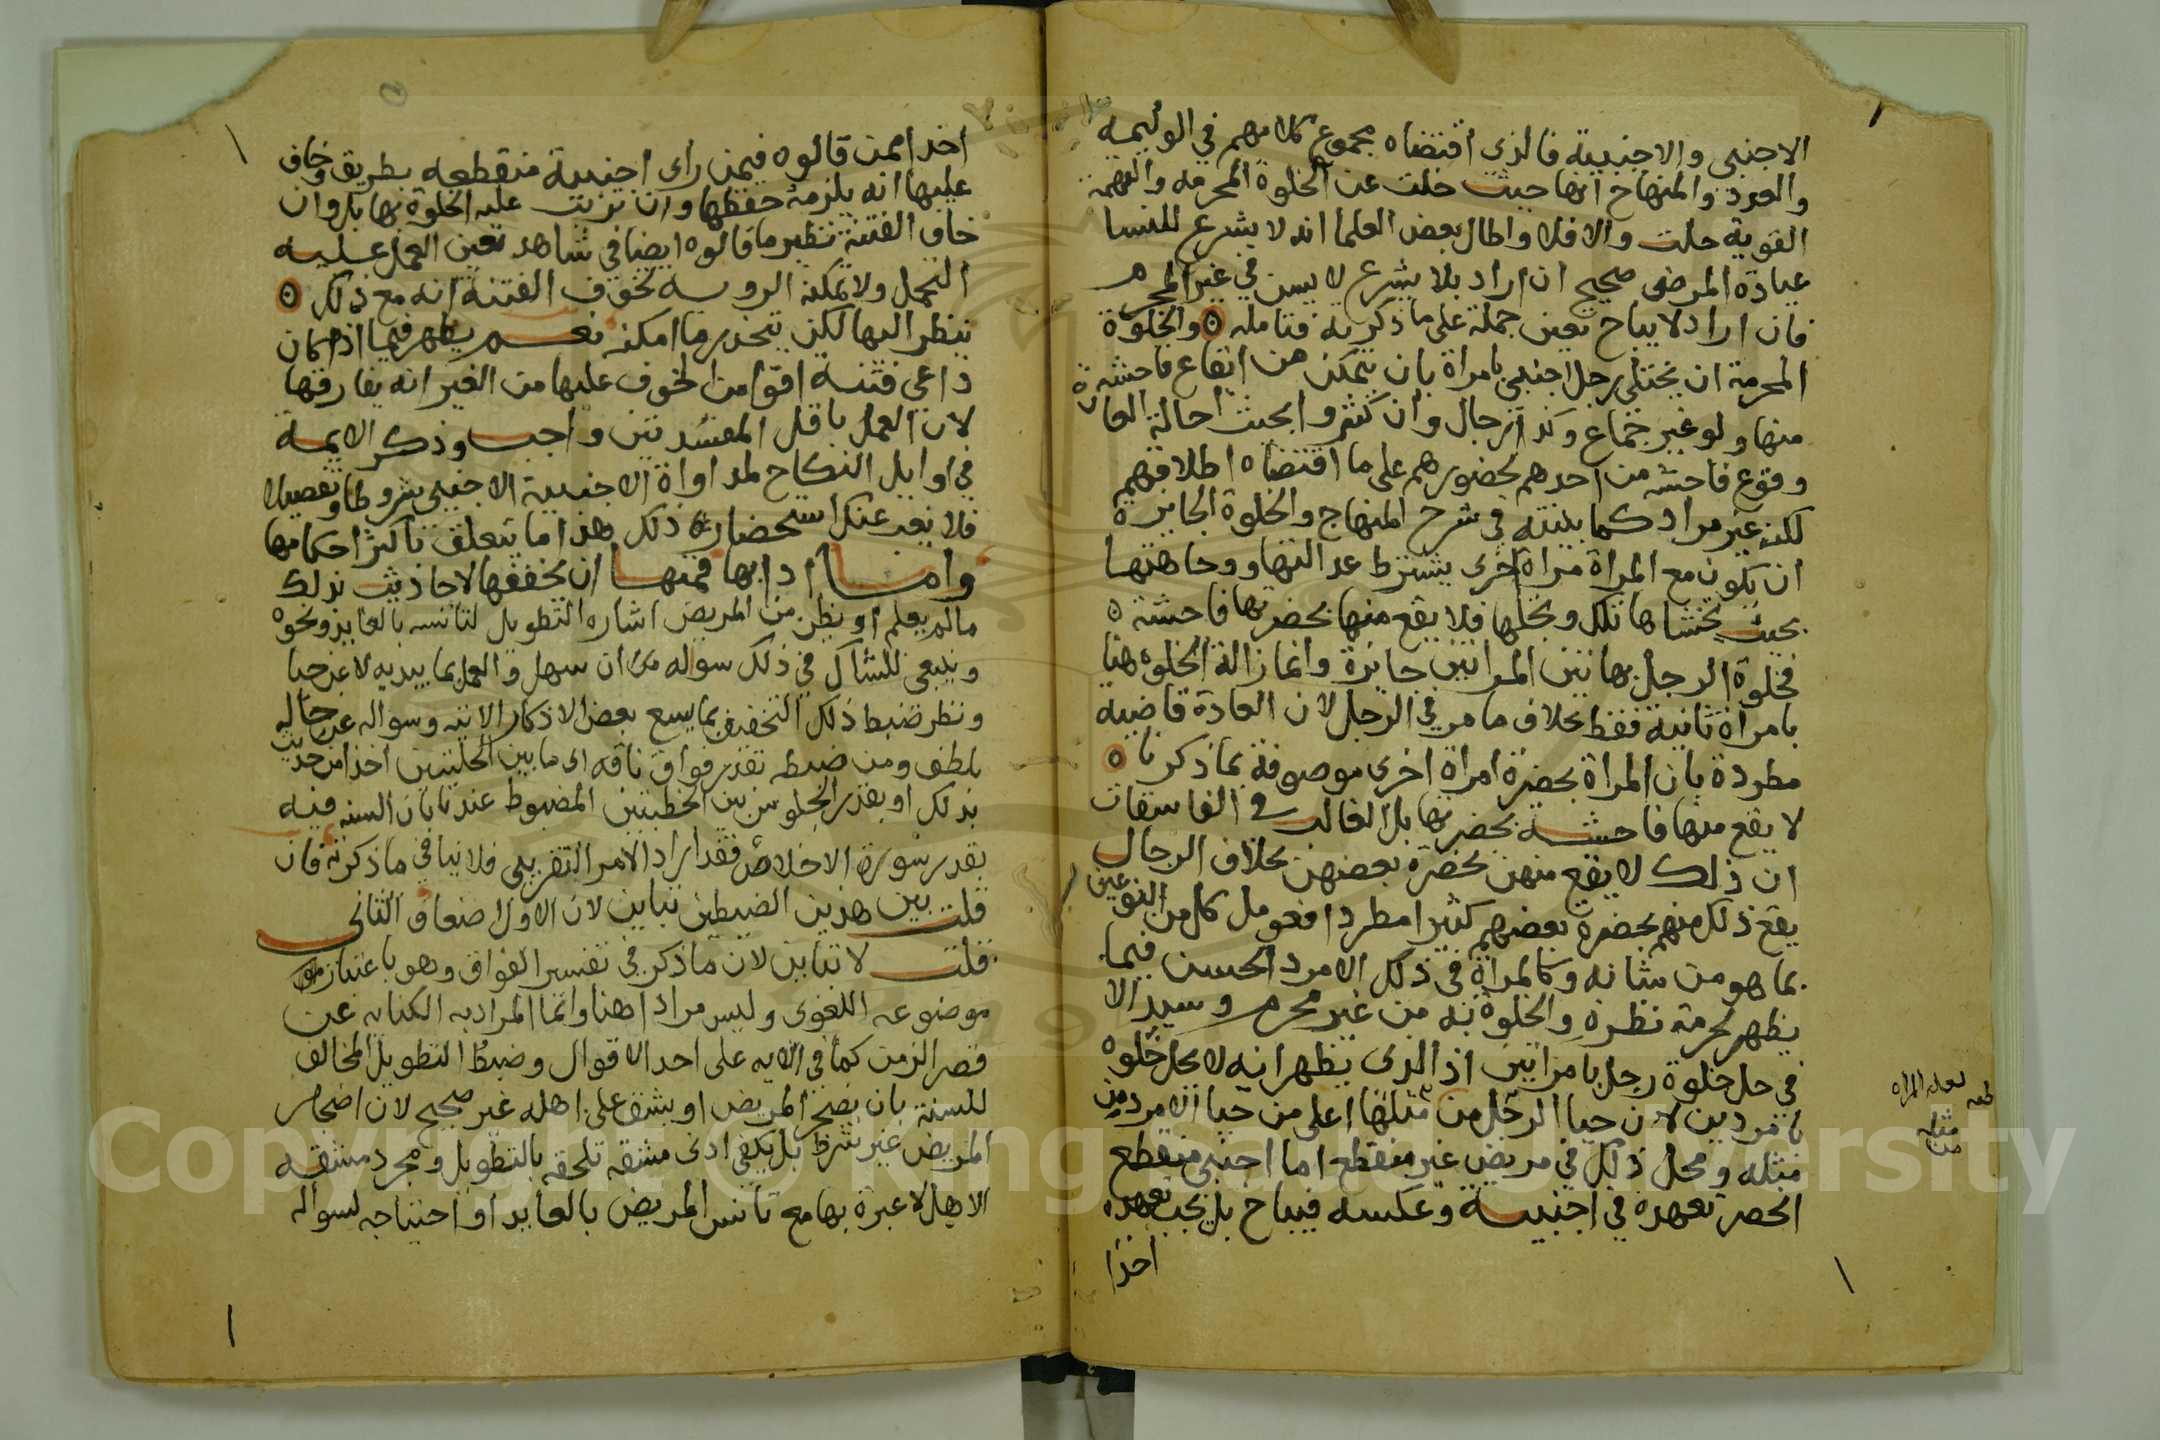 الاجنبى والاجنبية فالذى اقتضاه مجموع كلامهم في الوليمه
والعدد والمنهاج انها حيث خلت عن الخلوة المحرمه والتهمة
القوية حلت والا فلا واطال بعض العلما انه لا يشرع للنسا
عيادة المرضى صحيح ان اراد بلا يشرع لا يسن في غير المحرم
فان اراد لا يباح تعين حمله على ما ذكرته فتامله ه والخلوة
المحرمة ان يختلى رجل اجنبى بامراة بان يتمكن من ايقاع فاحشة
منها ولو غير جماع وكذا رجال وان كثروا بحيث احالة العادة
وقوع فاحشه من احدهم بحضورهم على ما اقتضاه اطلاقهم
لكنه غير مراد كما بينته في شرح المنهاج والخلوة الجايزة
ان يكون مع المراة مراة اخرى يشترط عدالتها ووجاهتها
بحيث تخشاها تلك وتجلها فلا يقع منها بحضرتها فاحشة ه
فخلوة الرجل بهاتين المراتين جايزة وانما زالة الخلوه هنا
بامراة ثانية فقط بخلاف ما مر في الرجل لان العادة قاضيه
مطردة بان المراة بحضرة امراة اخرى موصوفة بما ذكرنا ه
لا يقع منها فاحشه بحضرتها بل الغالب في الفاسقات
ان ذلك لا يقع منهن بحضرة بعضهن بخلاف الرجال
يقع ذلك منهم بحضرة بعضهم كثيرا مطردا فعومل كل من النوعين
بما هو من شانه وكالمراة في ذلك الامرد الحسن فيما
يظهر لحرمة نظره والخلوة به من غير محرم وسيد الا
في حل خلوة رجل بامراتين اذ الذى يظهر انه لا يحل خلوه
بامردين لان حيا الرجل من مثلها اعلى من حيا الامرد من
مثله ومحل ذلك في مريض غير منقطع اما اجنبى منقطع
انحصر تعهده في اجنبية وعكسه فيباح بل يجب تعهده
اخذا
لعله المراه
مثله
من
اخذا ممن قالوه فيمن راى اجنبية منقطعه بطريق وخاف
عليها انه يلزمه حفظها وان ترتب عليه الخلوة بها بل وان
خاف الفتنة نظير ما قالوه ايضا في شاهد تعين العمل عليه
التحمل ولا يمكنه الرويه لخوف الفتنة انه مع ذلك ه
ينظر اليها لكن يتحذر ما امكنه نعم يظهر فيما اذا كان
داعى فتنة اقوا من الخوف عليها من الغير انه يفارقها
لان العمل باقل المفسدتين واجب وذكر الايمة
في اوايل النكاح لمداواة الاجنبية الاجنبى شروطا وتفصيلا
فلا يغب عنك استحضار ذلك هذا ما يتعلق باكثر احكامها
واما ادابها فمنها ان يخففها لاحاديث بذلك
مالم يعلم او يظن من المريض اشاره التطويل لتانسه بالعايد ونحوه
وينبغى للشاك في ذلك سواله ان سهل والعمل بما يبديه لا عن حيا
ونظر ضبط ذلك التخفيف بما يسع بعض الاذكار الاتية وسواله عن حاله
بلطف ومن ضبطه بقدر فواق ناقه اى ما بين الحلبتين اخذا من حديث
بذلك او بقدر الجلوس بين الخطبتين المضبوط عندنا بان السنه فيه
بقدر سورة الاخلاص فقد اراد الامر التقريبى فلا ينافي ما ذكرته فان
قلت بين هذين الضبطين تباين لان الاول اضعاف الثانى
قلت لا تباين لان ما ذكر في تفسير الفواق وهو باعتبار
موضوعه اللغوى وليس مرادا هنا وانما المراد به الكنايه عن
قصر الزمن كما في الايه على احد الاقوال وضبط التطويل المخالف
للسنة بان يضجر المريض او يشق على اهله غير صحيح لان اضجار
المريض غير شرط بل يكفى ادنى مشقه تلحقه بالتطويل ومجرد مشقه
الاهل لا عبرة بها مع تانس المريض بالعايد او احتياجه لسواله
Copyright © King Saud University